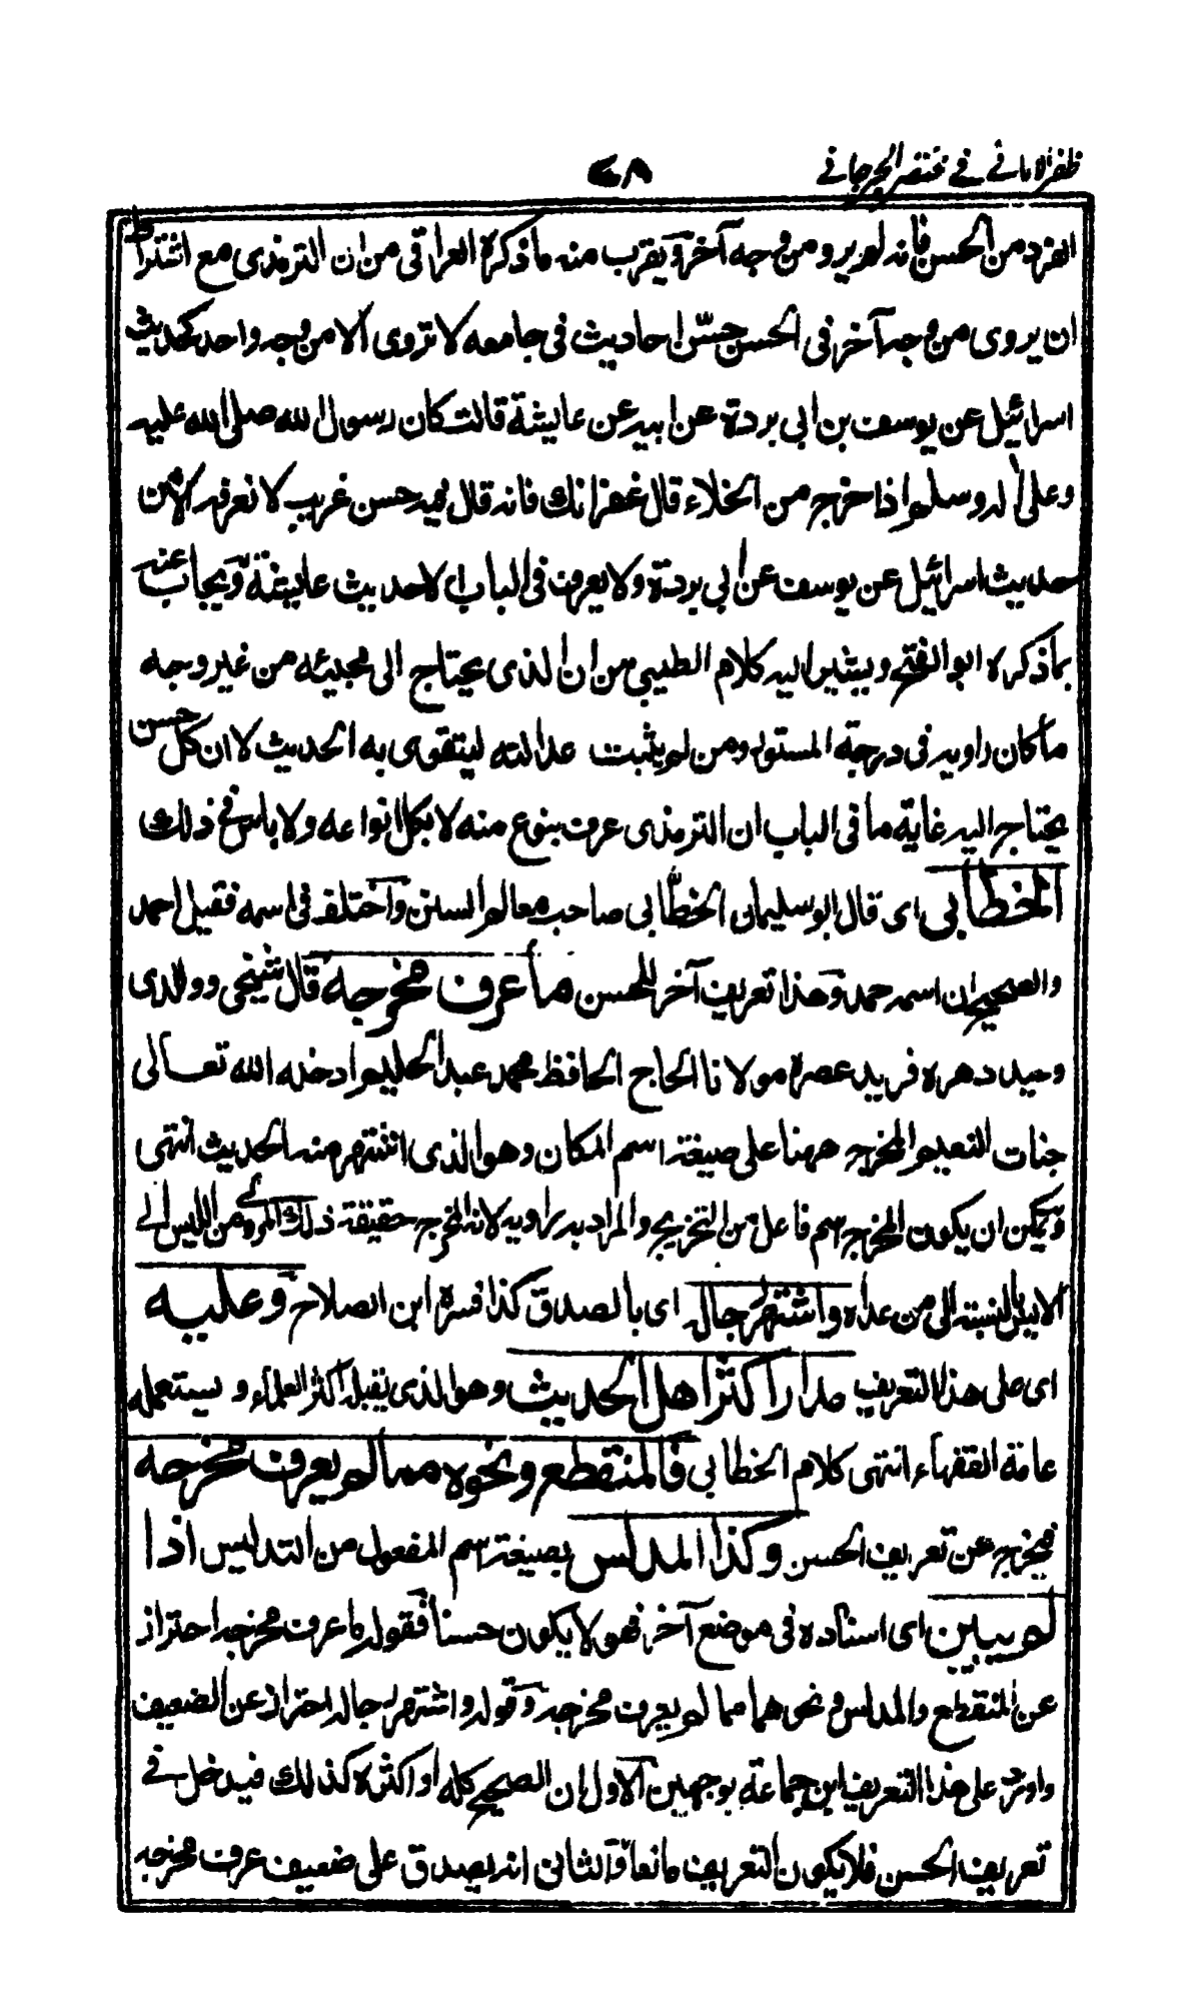 ظفر الامانى فى مختصر الجرجانى ٧٨
الفرد من الحسن فانه لم يرو من وجه آخر ويقرب منه ما ذكره العراقى من ان الترمذى مع اشتراط
ان يروى من وجه آخر فى الحسن حسّن احاديث فى جامعه لا تروى الا من وجه واحد كحديث
اسرائيل عن يوسف بن ابى بردة عن ابيه عن عايشة قالت كان رسول الله صلى الله عليه
وعلى اله وسلم اذا خرج من الخلاء قال غفرانك فانه قال فيه حسن غريب لا نعرفه الا من
حديث اسرائيل عن يوسف عن ابى بردة ولا يعرف فى الباب الا حديث عايشة ويجاب عنه
بما ذكره ابو الفتح ويشير اليه كلام الطيبى من ان الذى يحتاج الى مجيئه من غير وجه
ما كان راويه فى درجة المستور ومن لم يثبت عدالته ليتقوى به الحديث لا ان كل حسن
يحتاج اليه غاية ما فى الباب ان الترمذى عرف بنوع منه لا بكل انواعه ولا باس فى ذلك
الخطابى اى قال ابو سليمان الخطّابى صاحب معالم السنن واختلف فى اسمه فقيل احمد
والصحيح ان اسمه حمد وهذا تعريف آخر للحسن ما عرف مخرجه قال شيخى ووالدى
وحيد دهره فريد عصره مولانا الحاج الحافظ محمد عبد الحليم ادخله الله تعالى
جنات النعيم المخرج ههنا على صيغة اسم المكان وهو الذى اشتهر منه الحديث انتهى
ويمكن ان يكون المخرج اسم فاعل من التخريج والمراد به راويه لانه المخرج حقيقة ذلك المروى من الليس الى
الايس بالنسبة الى من عداه واشتهر رجاله اى بالصدق كذا فسره ابن الصلاح وعليه
اى على هذا التعريف مدار اكثر اهل الحديث وهو الذى يقبله اكثر العلماء و يستعمله
عامة الفقهاء انتهى كلام الخطابى فالمنقطع ونحوه مما لم يعرف مخرجه
فيخرج عن تعريف الحسن وكذا المدلس بصيغة اسم المفعول من التدليس اذا
لم يبين اى اسناده فى موضع آخر فهو لا يكون حسنا فقوله ما عرف مخرجه احتراز
عن المنقطع والمدلس ونحوهما مما لم يعرف مخرجه وقوله واشتهر رجاله احتراز عن الضعيف
واورد على هذا التعريف ابن جماعة بوجهين الاول ان الصحيح كله او اكثره كذلك فيدخل فى
تعريف الحسن فلا يكون التعريف مانعا والثانى انه يصدق على ضعيف عرف مخرجه